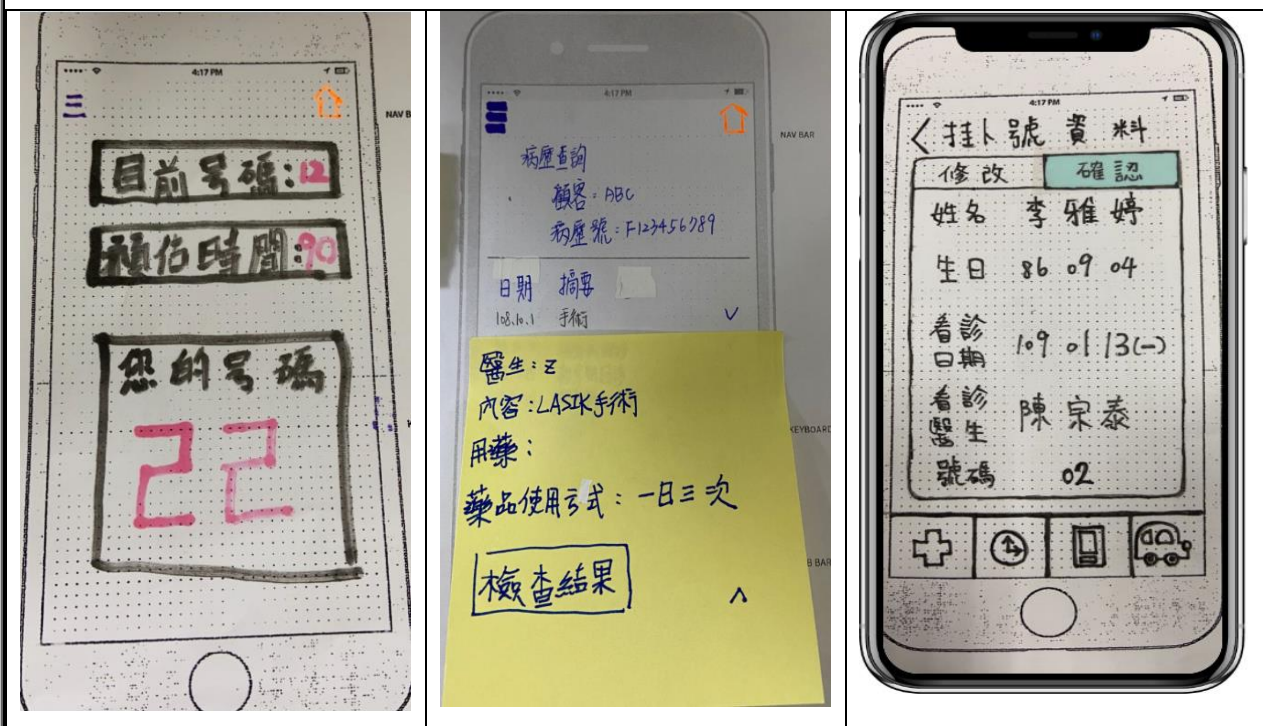 4:17 PM
NAV B
目前号碼:12
預估時間:90
您的号碼
22
4:17 PM
NAV BAR
病歷查詢
顧客:ABC
病歷號:F123456789
日期 摘要
108.10.1 手術
KEYBOARD
醫生:Z
內容:LASIK手術
用藥:
藥品使用方式:一日三次
B BAR
檢查結果
4:17 PM
く掛號資料
修改 確認
姓名 李雅婷
生日 86 09 04
看診日期 109 01 13(一)
看診醫生 陳宗泰
號碼 02